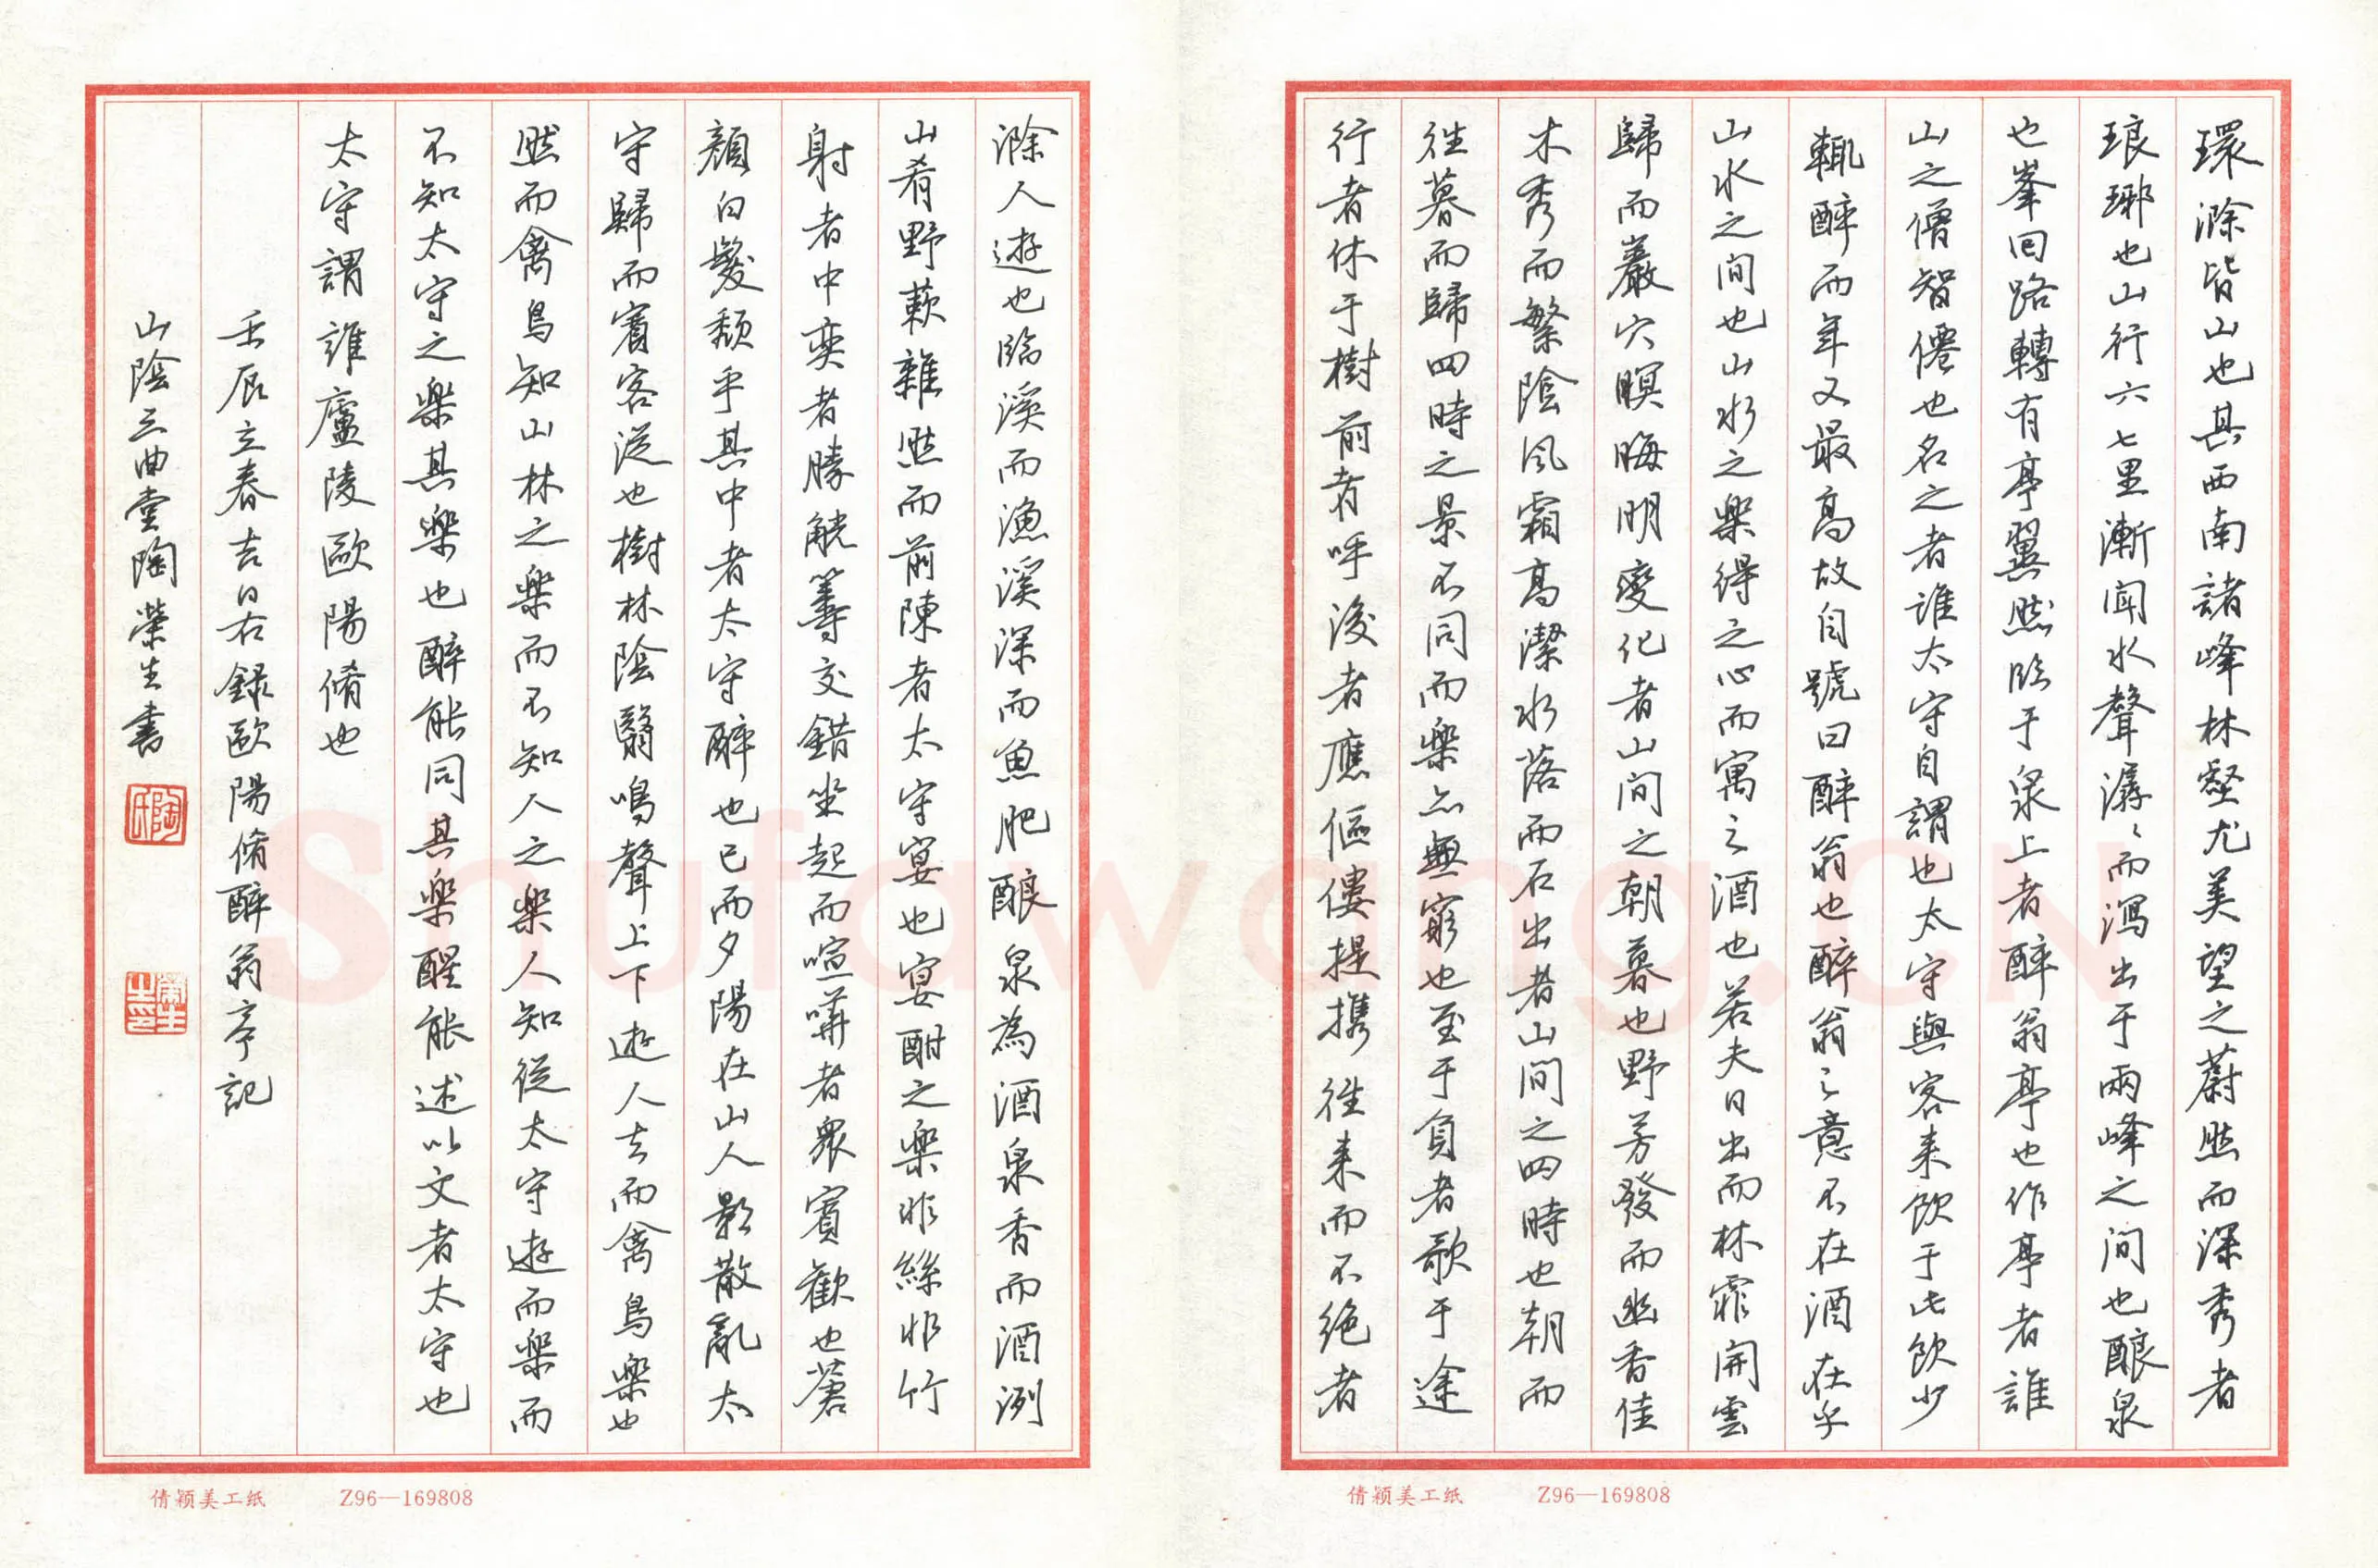 環滁皆山也其西南諸峰林壑尤美望之蔚然而深秀者
琅琊也山行六七里漸聞水聲潺〻而瀉出于兩峰之間也釀泉
也峯回路轉有亭翼然臨于泉上者醉翁亭也作亭者誰
山之僧智僊也名之者誰太守自謂也太守與客来飲于此飲少
輒醉而年又最高故自號曰醉翁也醉翁之意不在酒在乎
山水之間也山水之樂得之心而寓之酒也若夫日出而林霏開雲
歸而巖穴暝晦明變化者山間之朝暮也野芳發而幽香佳
木秀而繁陰風霜高潔水落而石出者山間之四時也朝而
往暮而歸四時之景不同而樂亦無窮也至于負者歌于途
行者休于樹前者呼後者應傴僂提攜往来而不绝者
滁人遊也臨溪而漁溪深而魚肥釀泉為酒泉香而酒洌
山肴野蔌雜然而前陳者太守宴也宴酣之樂非絲非竹
射者中奕者勝觥籌交錯坐起而喧嘩者衆賓歡也蒼
顏白髮頹乎其中者太守醉也已而夕陽在山人影散亂太
守歸而賓客從也樹林陰翳鳴聲上下遊人去而禽鳥樂也
然而禽鳥知山林之樂而不知人之樂人知從太守遊而樂而
不知太守之樂其樂也醉能同其樂醒能述以文者太守也
太守謂誰廬陵歐陽脩也
壬辰立春吉日右録歐陽脩醉翁亭記
山陰三曲堂陶榮生書
陶氏
榮生之印
倩颖美工纸 Z96—169808
倩颖美工纸 Z96—169808
Shufawang.CN